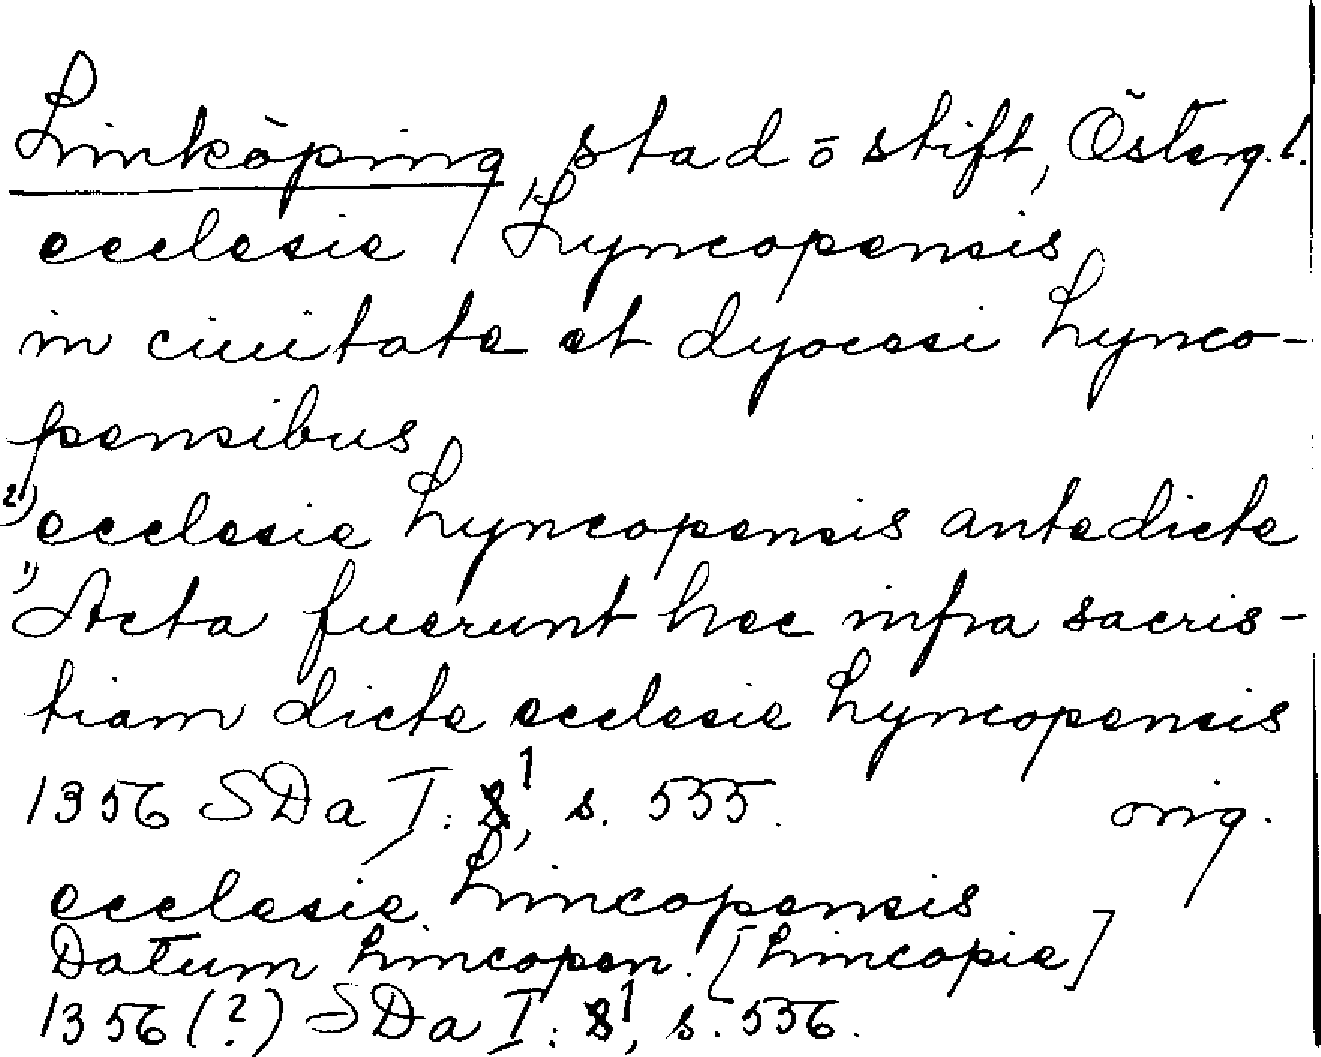 Linköping stad o stift, Österg.l.
ecclesie 1) Lyncopensis
in ciuitate et dyocesi Lynco-
pensibus
2) ecclesie Lyncopensis antedicte
1) Acta fuerunt hec infra sacris-
tiam dicte ecclesie Lyncopensis
1356 SDa I: 1, s. 555. orig.
ecclesie Lincopensis
Datum Lincopen. [Lincopie]
1356 (?) SDa I: 1, s. 556.